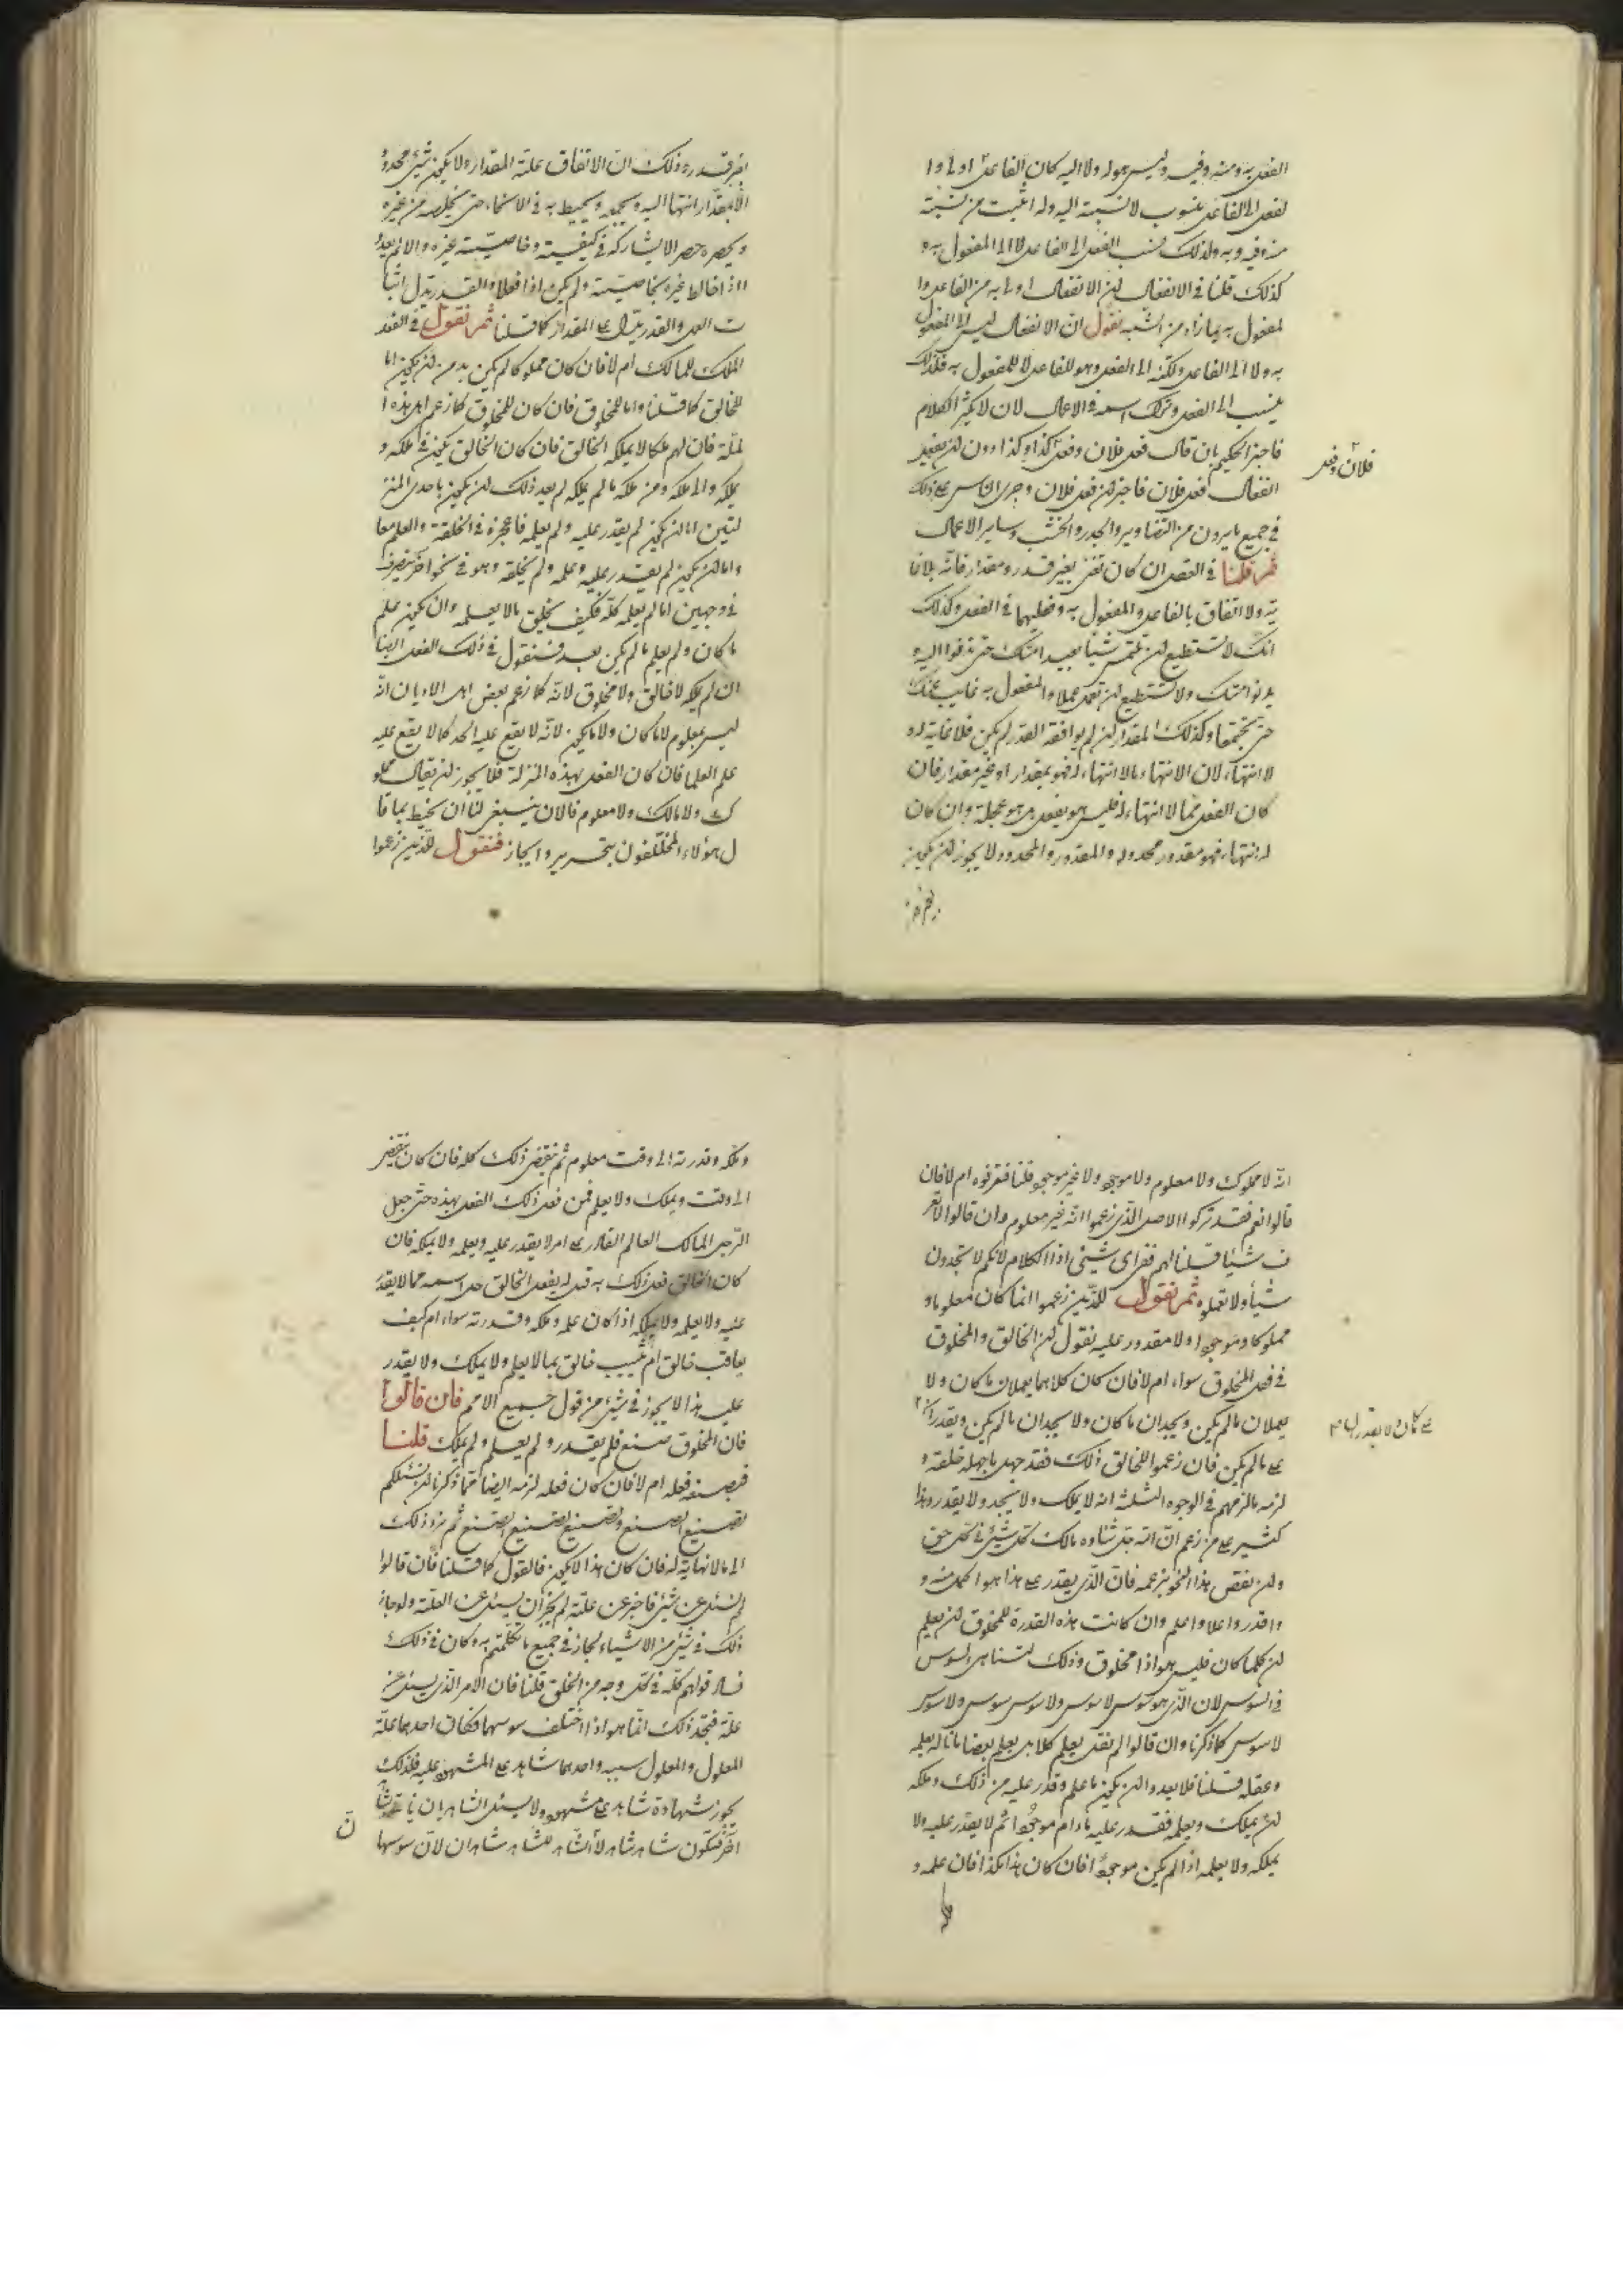 الفعل به ومنه وفيه وليس هو له ولا اليه كان الفاعل اولى وا
لفعل الى الفاعل منسوب لا نسبة اليه وله اثبت من نسبة
منه وفيه وبه ولذلك نسب الفعل الى الفاعل لا الى المفعول به و
كذلك قلنا في الانفعال لان الانفعال اولى به من الفاعل وا
لمفعول به بما زاد من الشبه نقول ان الانفعال ليس الى المفعول
به ولا الى الفاعل ولكنه الى الفعل وهو للفاعل لا للمفعول به فلذلك
ينسب الى الفعل وترك اسمه في الاعمال لان لا يكثر الكلام
فاجتزا الحكيم بان قال فعل فلان وفعل كذا وكذا دون ان يقول
انفعال فعل فلان فاجتزا لان فعل فلان وجرى الناس على ذلك
فلان وفعل
في جميع ما يرون من التصاوير والجدر والخشب وساير الاعمال
ثم قلنا في الفعل ان كان تغير بغير قدر ومقدار فانه بلا غا
ية ولا اتفاق بالفاعل والمفعول به وفعليهما في الفعل وكذلك
انك لا تستطيع ان تلتمس شيئا بعيد امنك حتى تدنوا اليه و
يدنوا منك ولا تستطيع ان تعمل عملا والمفعول به غايب عنك
حتى يجتمعا وكذلك المقدار ان لم يوافقه القدر لم يكن فلا غاية له و
لا انتهاء لان الانتهاء بالا انتهاء له فهو بمقدار او غير مقدار فان
كان الفعل مما لا انتهاء له فليس هو بفعل بل هو عجلة وان كان
له انتهاء فهو مقدور محدود له والمقدور والمحدود لا يجوز ان يكون
بغير قدره وذلك ان الاتفاق علة المقدار ولا يكون شيئ محدود
الا بمقدار انتهاء اليه وبحده ويحيط به في الانتهاء حتى يخلصه من غيره
ويحصره حصر الا يشاركه في كيفيته وخاصيته غيره والا لم يعد
اذا خالط غيره بخاصيته ولم يكن اذا فعلا والقدر يدل اثبا
ت العمل والقدر يدل على المقدار كما قلنا ثم نقول في الفعل
الملك للمالك ام لا فان كان مملوكا لم يكن بد من ان يكون اما
للخالق كما قلنا واما للمخلوق فان كان للمخلوق كما زعم اهل هذه ا
لملة فان لهم ملكا لا يملكه الخالق فان كان الخالق يكون في ملكه و
يملكه والى ملكه ومن ملكه ما لم يملكه لم يعد ذلك ان يكون باحدى المنز
لتين اما ان يكون لم يقدر عليه ولم يعلمه فاعجزه في الخلقة والعلم معا
واما ان يكون لم يقدر عليه وعلمه ولم يخلقه وهو في نحو اخر يتصرف
في وجهين اما لم يعلمه كله فكيف يخلق ما لا يعلمه وان يكون علم
ما كان ولم يعلم ما لم يكن بعد فسنقول في ذلك الفعل ايضا
ان لم يملكه لا خالق ولا مخلوق لانه كما زعم بعض اهل الاديان انه
ليس بمعلوم لا ما كان ولا ما يكون لانه لا يقع عليه الحد كما لا يقع عليه
علم العلما فان كان الفعل بهذه المنزلة فلا يجوز ان يقال مملو
ك ولا مالك ولا معلوم فالان ينبغي لنا ان نحيط بما قا
ل هؤلاء المختلفون بتحرير وايجاز فنقول للذين زعموا
انه لا مملوك ولا معلوم ولا موجود ولا غير موجود قلنا فتعرفوه ام لا فان
قالوا نعم فقد تركوا الاصل الذي زعموا انه غير معلوم وان قالوا لا نعر
ف شيئا قلنا لهم ففي اى شيئ اذا الكلام لانكم لا تجدون
شيأ ولا تعملوه ثم نقول للذين زعموا انما كان معلوما و
مملوكا وموجودا ولا مقدور عليه نقول ان الخالق والمخلوق
في فعل المخلوق سواء ام لا فان كان كلاهما يعملان ما كان ولا
يعملان ما لم يكن ويجدان ما كان ولا يجدان ما لم يكن ويقدران
على ما كان ولا يقدران
على ما لم يكن فان زعموا للخالق ذلك فقد جهل ما جهله خلقه و
لزمه ما لزمهم في الوجوه الثلثة انه لا يملك ولا يجد ولا يقدر وهذا
كثير على من زعم ان الله جل ثناؤه مالك كل شيئ في كل حق
ولان نقض هذا النحو بزعمه فان الذي يقدر على هذا هو اكمل منه و
واقدر واعلا واعلم وان كانت هذه القدرة للمخلوق ان يعلم
ان كلما كان فليس هو اذا مخلوق وذلك لتناهى السوس
في السوس لان الذي هو سوس لا سوس ولا سوس سوس ولا سوس
لا سوس كما ذكرنا وان قالوا لم نقل يعلم كلا بل يعلم بعضا ما ناله بعلمه
وعقله قلنا فلا يعدوا ان يكون ما علم وقدر عليه من ذلك وملكه
لان يملك ويعلمه فقد قدر عليه ما دام موجودا ثم لا يقدر عليه ولا
يملكه ولا يعلمه اذا لم يكن موجودا فان كان هذا هكذا فان علمه و
ملكه
وملكه وقدرته الى وقت معلوم ثم ينقض ذلك كله فان كان ينقض
الى وقت ويملك ولا يعلم فمن فعل ذلك الفعل بهذه حتى جعل
الرجل المالك العالم القادر على امر لا يقدر عليه ويعلمه ولا يملكه فان
كان الخالق فعل ذلك به قبل له يفعل الخالق جل اسمه ما لا يقدر
عليه ولا يعلمه ولا يملكه اذا كان علمه وملكه وقدرته سواء ام كيف
يعاقب خالق ام يثيب خالق بما لا يعلم ولا يملك ولا يقدر
عليه هذا لا يجوز في شيئ من قول جميع الامم فان قالوا
فان المخلوق صنع فلم يقدر ولم يعلم ولم يملك قلنا
فبصنعه فعله ام لا فان كان فعله لزمه ايضا مما ذكرنا ان نسئلكم
لصنيع الصنع ولصنيع لصنيع الصنيع ثم نزد ذلك
الى ما لا نهاية له فان كان هذا لا يكون فالقول كما قلنا فان قالوا
لم نسئل عن شيئ فاخبر عن علته لم يجز ان يسئل عن العلة ولو جاز
ذلك في شيئ من الاشياء لجاز في جميع ما تكلمتم به وكان في ذلك
فساد قولهم كله في كل وجه من الخلق قلنا فان الامر الذي يسئل عن
علة فتجد ذلك انما هو اذا اختلف سوسهما فكان احدهما علة
المعلول والمعلول سببه واحدهما شاهد على المشهود عليه فلذلك
يجوز شهادة شاهد على مشهود ولا يسئل الشاهدان ياتى بشا
ن
اخر فتكون شاهد شاهد لان الشاهد للشاهد شاهدان لان سوسها